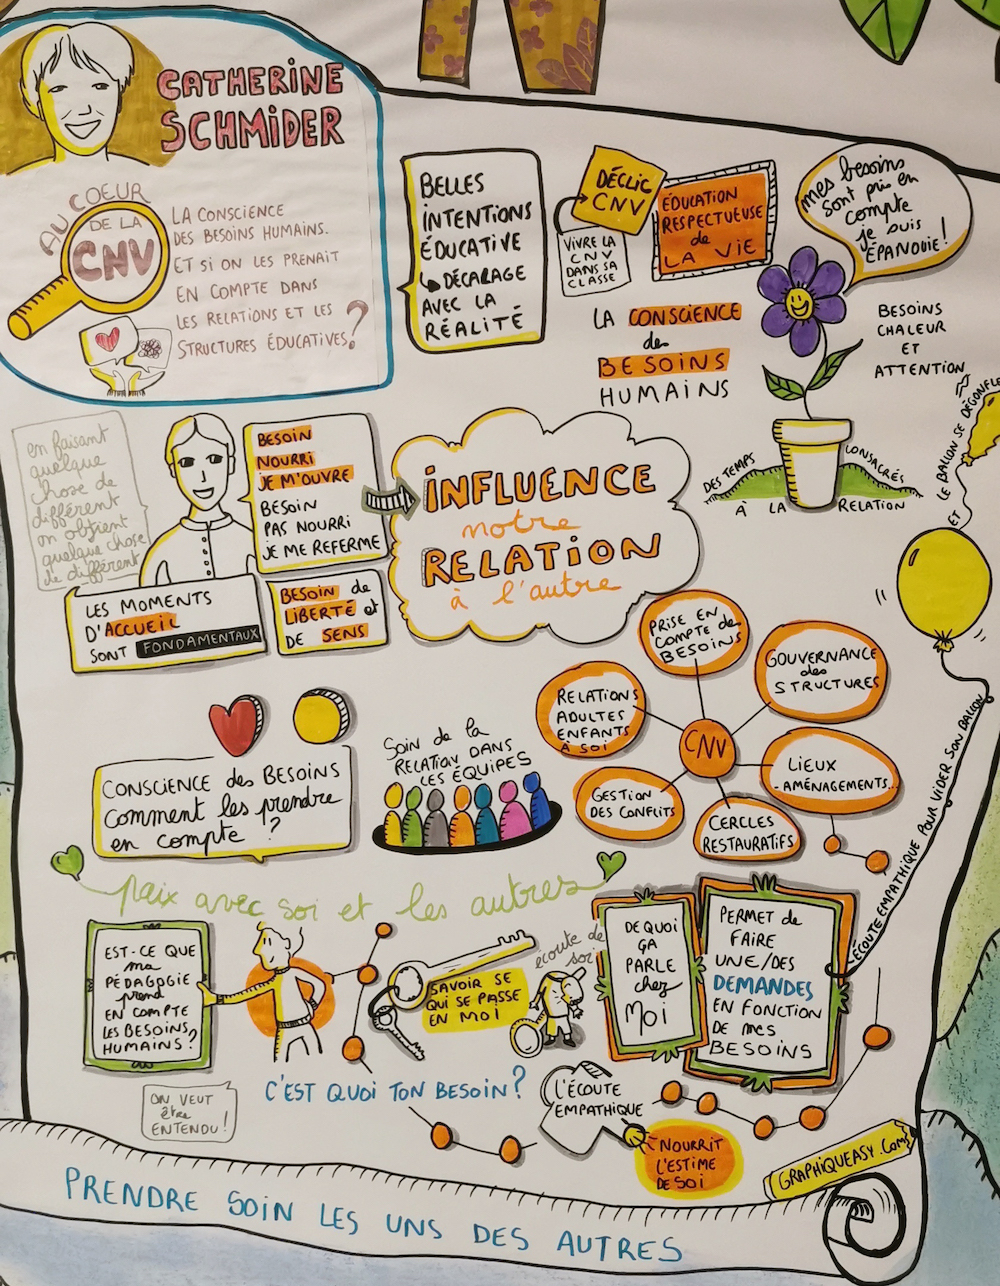 CATHERINE
SCHMIDER
AU COEUR
DE LA
CNV
LA CONSCIENCE
DES BESOINS HUMAINS.
ET SI ON LES PRENAIT
EN COMPTE DANS
LES RELATIONS ET LES
STRUCTURES ÉDUCATIVES?
BELLES
INTENTIONS
ÉDUCATIVE
↳ DÉCALAGE
AVEC LA
RÉALITÉ
DÉCLIC
CNV
VIVRE LA
CNV
DANS SA
CLASSE
ÉDUCATION
RESPECTUEUSE
de
LA VIE
mes besoins
sont pris en
compte
je suis
ÉPANOUIE!
LA CONSCIENCE
des
BESOINS
HUMAINS
BESOINS
CHALEUR
ET
ATTENTION
DES TEMPS CONSACRÉS
À LA RELATION
en faisant
quelque
chose de
différent
on obtient
quelque chose
de différent
BESOIN
NOURRI
JE M'OUVRE
BESOIN
PAS NOURRI
JE ME REFERME
INFLUENCE
notre
RELATION
à l'autre
LES MOMENTS
D'ACCUEIL
SONT FONDAMENTAUX
BESOIN de
LIBERTÉ et
DE SENS
ÉCOUTE EMPATHIQUE POUR VIDER SON BALLON
ET LE BALLON SE DÉGONFLE
CONSCIENCE des BESOINS
Comment les prendre
en compte !?
Soin de la
RELATION DANS
LES ÉQUIPES
CNV
PRISE EN
COMPTE de
BESOINS
GOUVERNANCE
des
STRUCTURES
LIEUX
-AMÉNAGEMENTS...
CERCLES
RESTAURATIFS
GESTION
DES CONFLITS
RELATIONS
ADULTES
ENFANTS
À SOI
paix avec soi et les autres
EST-CE QUE
ma
PÉDAGOGIE
prend
EN COMPTE
LES BESOINS
HUMAINS?
SAVOIR SE
QUI SE PASSE
EN MOI
écoute de
soi
DE QUOI
ÇA
PARLE
chez
MOI
PERMET de
FAIRE
UNE/DES
DEMANDES
EN FONCTION
DE mes
BESOINS
ON VEUT
être
ENTENDU!
C'EST QUOI TON BESOIN?
L'ÉCOUTE
EMPATHIQUE
NOURRIT
L'ESTIME
DE SOI
GRAPHIQUEASY.COM
PRENDRE SOIN LES UNS DES AUTRES